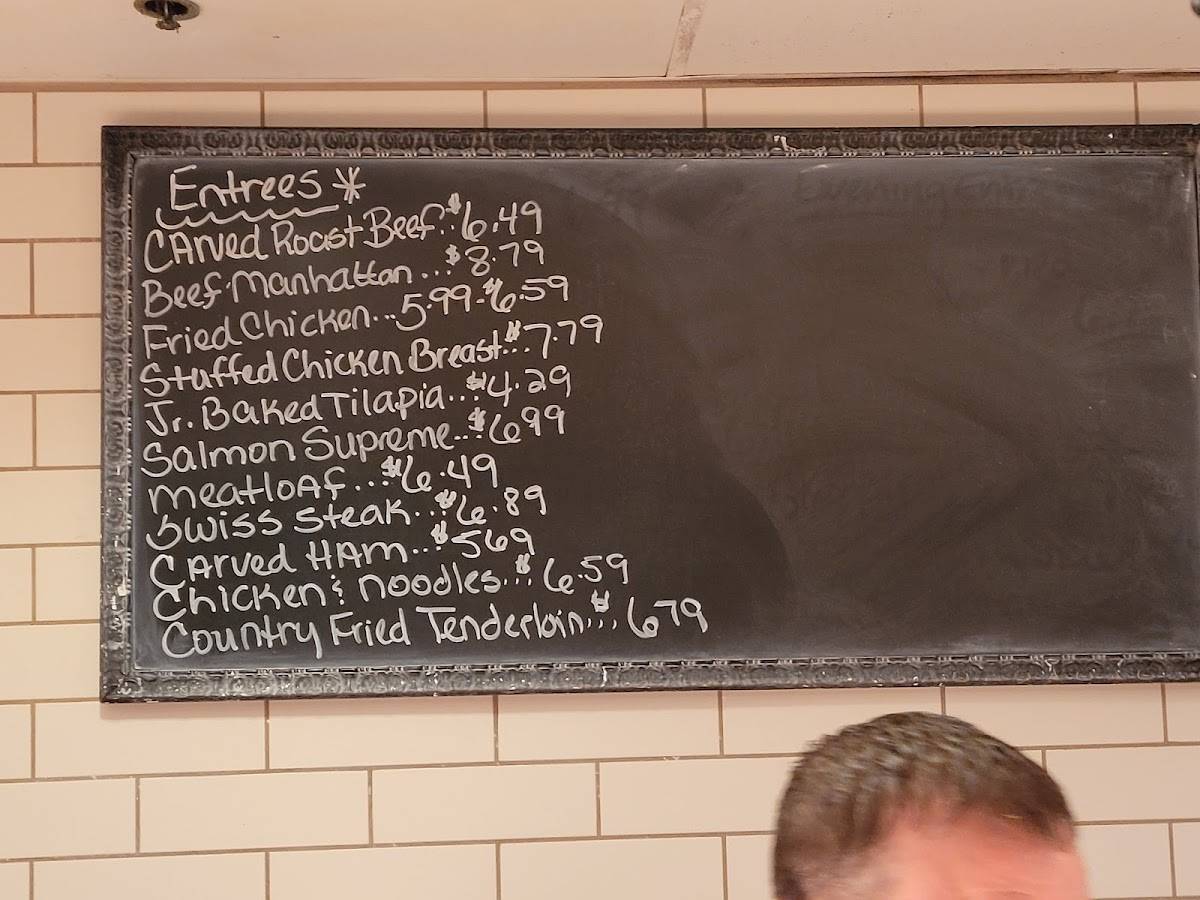 Entrees *
CArved Roast Beef..$6.49
Beef Manhattan...$8.79
Fried Chicken...5.99-$6.59
Stuffed Chicken Breast...$7.79
Jr. Baked Tilapia...$4.29
Salmon Supreme...$6.99
meatloAf...$6.49
Swiss Steak...$6.89
CArved HAm...$569
Chicken & noodles...$6.59
Country Fried Tenderloin...$679
Evening